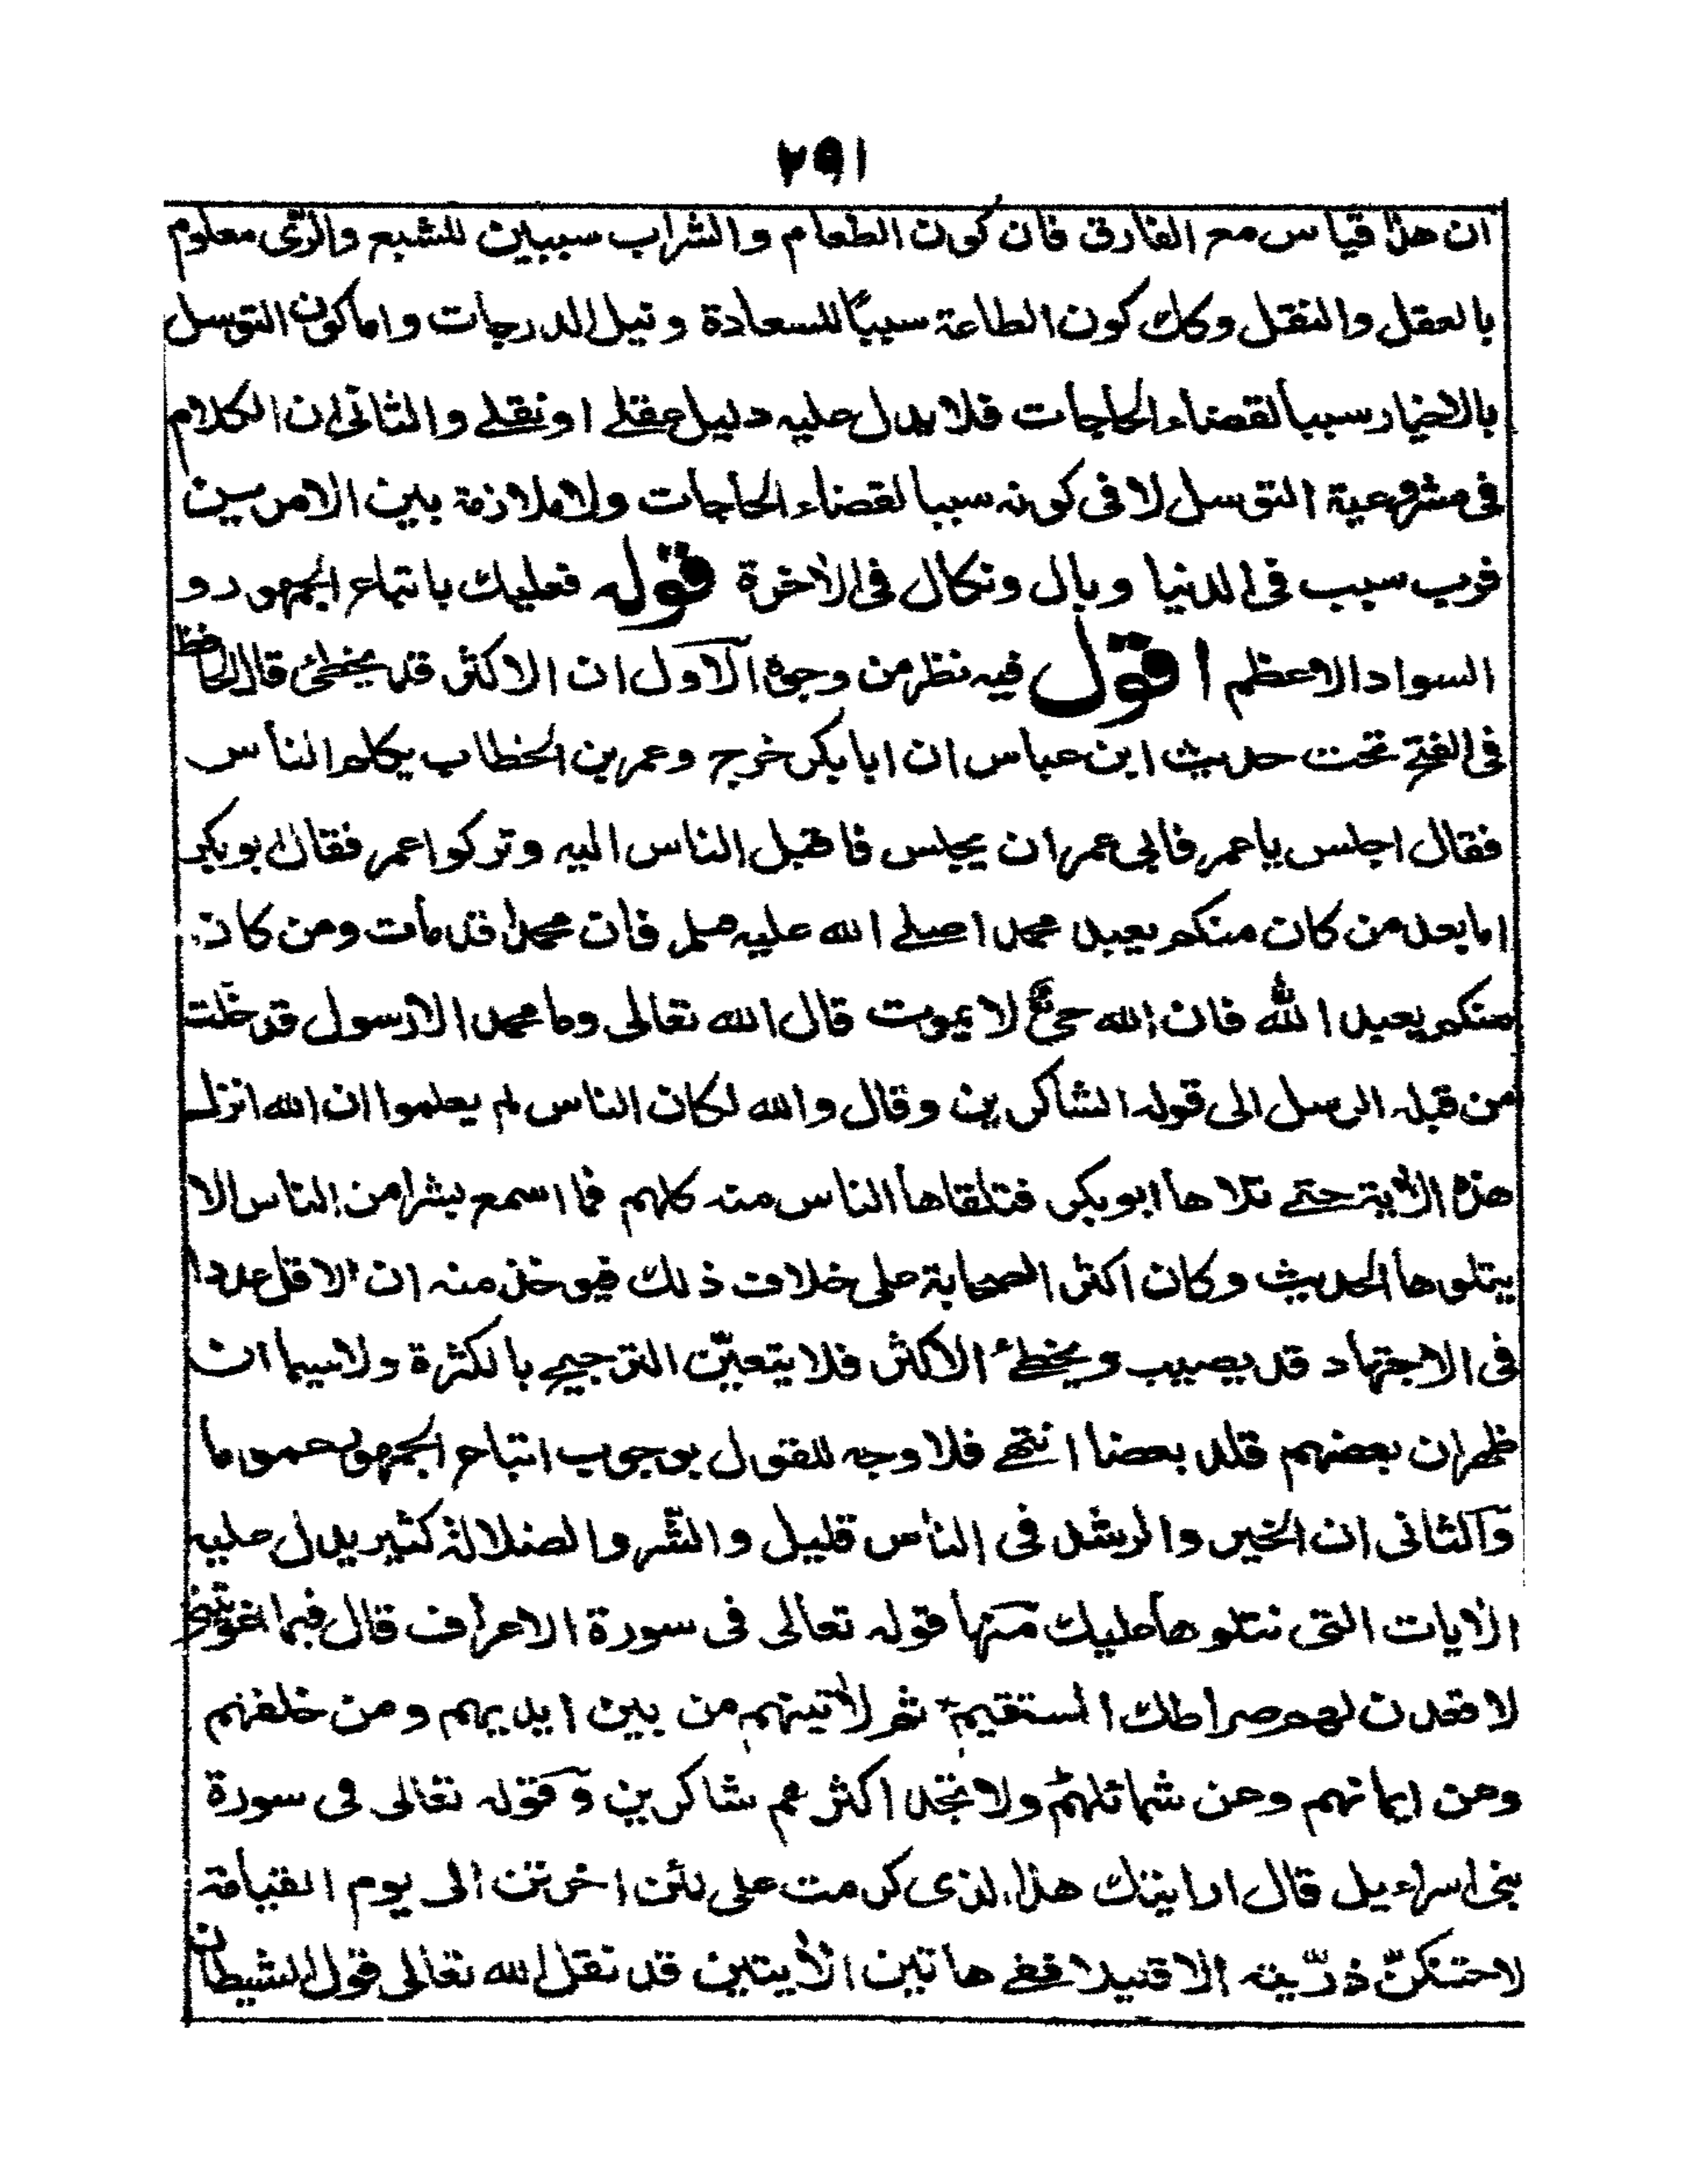 ٢٩١
ان هذا قياس مع الفارق فان كون الطعام والشراب سببين للشبع والرّى معلوم
بالعقل والنقل وكك كون الطاعة سببًا للسعادة ونيل الدرجات واما كون التوسل
بالاخيار سببا لقضاء الحاجات فلا يدل عليه دليل عقلے او نقلے والثانى ان الكلام
فى مشروعية التوسل لا فى كونه سببا لقضاء الحاجات ولا ملازمة بين الامرين
فرب سبب فى الدنيا وبال ونكال فى الاخرة قوله فعليك باتباع الجمهور و
السواد الاعظم اقول فيه نظر من وجوه الآول ان الاكثر قد يخطئ قال الحافظ
فى الفتح تحت حديث ابن عباس ان ابابكر خرج وعمر بن الخطاب يكلم الناس
فقال اجلس يا عمر فابى عمر ان يجلس فاقبل الناس اليه وتركوا عمر فقال ابو بكر
اما بعد من كان منكم يعبد محمدا صلے الله عليه وسلم فان محمدا قد مات ومن كان
منكم يعبد الله فان الله حىّ لا يموت قال الله تعالى وما محمد الا رسول قد خلت
من قبله الرسل الى قوله الشاكرين وقال والله لكان الناس لم يعلموا ان الله انزل
هذه الأية حتے تلاها ابو بكر فتلقاها الناس منه كلهم فما اسمع بشرا من الناس الا
يتلوها الحديث وكان اكثر الصحابة على خلاف ذلك فيوخذ منه ان الاقل عددا
فى الاجتهاد قد يصيب ويخطئ الاكثر فلا يتعيّن الترجيح بالكثرة ولا سيما ان
ظهر ان بعضهم قلد بعضا انتهے فلا وجه للقول بوجوب اتباع الجمهور عموما
وآلثانى ان الخير والرشد فى الناس قليل والشّر والضلالة كثير يدل عليه
الأيات التى نتلوها عليك منها قوله تعالى فى سورة الاعراف قال فبما اغويتنى
لاقعدن لهم صراطك المستقيم ثم لأتينهم من بين ايديهم ومن خلفهم
وعن ايمانهم وعن شمائلهم ولا تجد اكثرهم شاكرين وقوله تعالى فى سورة
بنى اسراءيل قال ارايتك هذا الذى كرمت على لئن اخرتن الى يوم القيامة
لاحتنكنّ ذرّيته الا قليلا ففے هاتين الأيتين قد نقل الله تعالى قول الشيطان